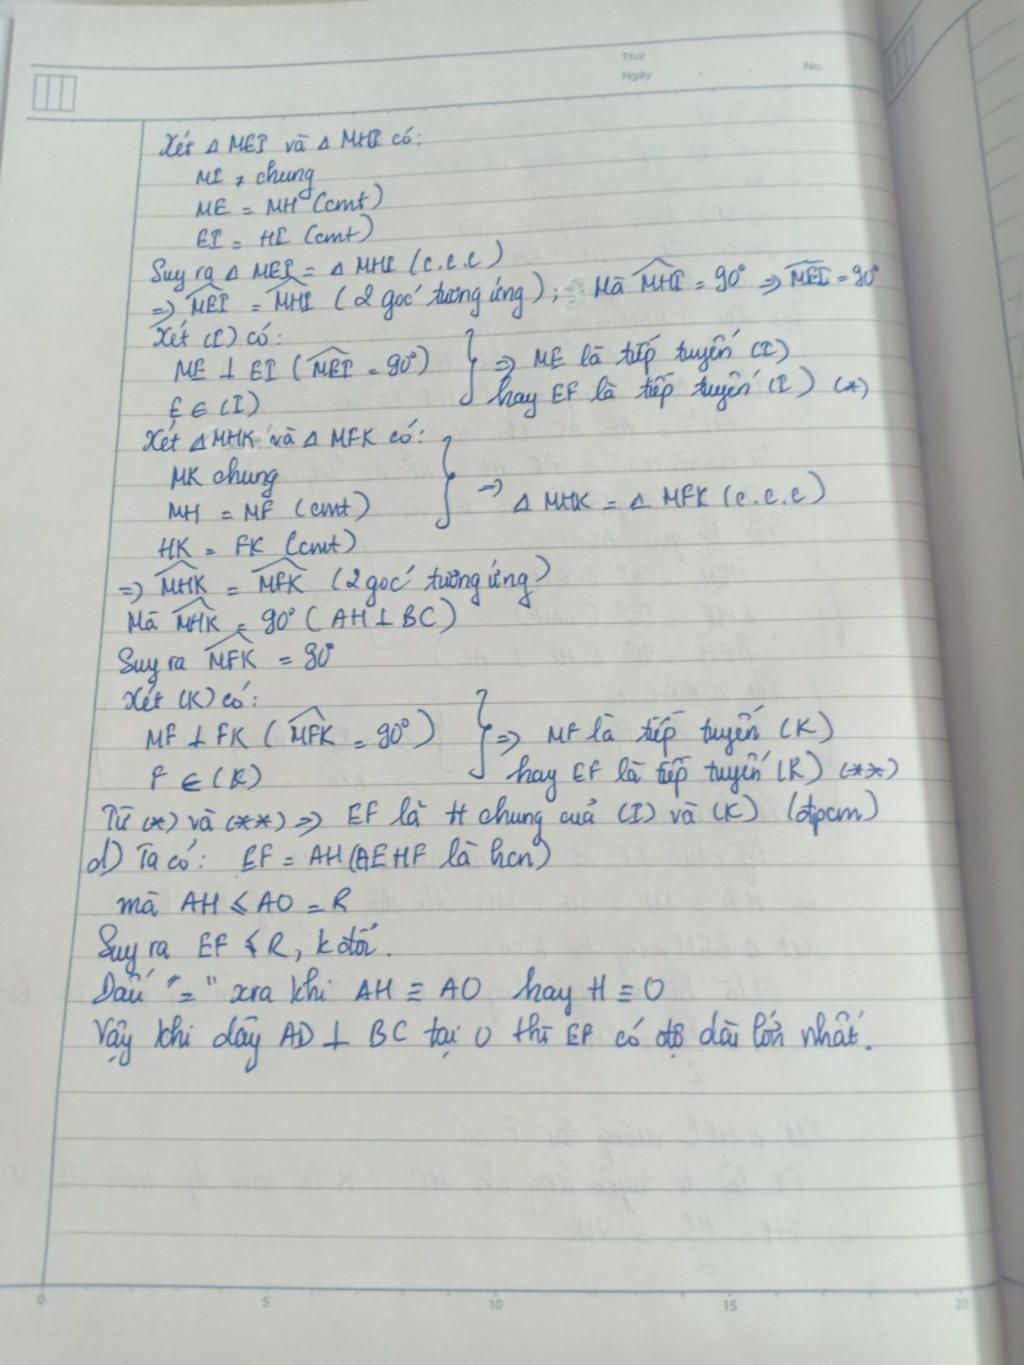 Thứ
Ngày
No.
Xét Δ MEI và Δ MHI có:
MI chung
ME = MH (cmt)
EI = HI (cmt)
Suy ra Δ MEI = Δ MHI (c.c.c)
=> MEI = MHI (2 góc tương ứng); Mà MHI = 90° => MEI = 90°
Xét (I) có:
ME ⊥ EI (MEI = 90°) } => ME là tiếp tuyến (I)
E ∈ (I) hay EF là tiếp tuyến (I) (*)
Xét Δ MHK và Δ MFK có:
MK chung
MH = MF (cmt) } => Δ MHK = Δ MFK (c.c.c)
HK = FK (cmt)
=> MHK = MFK (2 góc tương ứng)
Mà MHK = 90° (AH ⊥ BC)
Suy ra MFK = 90°
Xét (K) có:
MF ⊥ FK (MFK = 90°) } => MF là tiếp tuyến (K)
F ∈ (K) hay EF là tiếp tuyến (K) (**)
Từ (*) và (**) => EF là tt chung của (I) và (K) (đpcm)
d) Ta có: EF = AH (AEHF là hcn)
mà AH ≤ AO = R
Suy ra EF ≤ R, k đổi.
Dấu "=" xra khi AH ≡ AO hay H ≡ O
Vậy khi dây AD ⊥ BC tại O thì EF có độ dài lớn nhất.
0 5 10 15 20